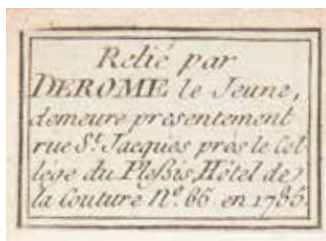 Relié par
DEROME le Jeune,
demeure présentement
rue St. Jacques près le Col-
lège du Plessis, Hôtel de
la Couture No. 65 en 1785.